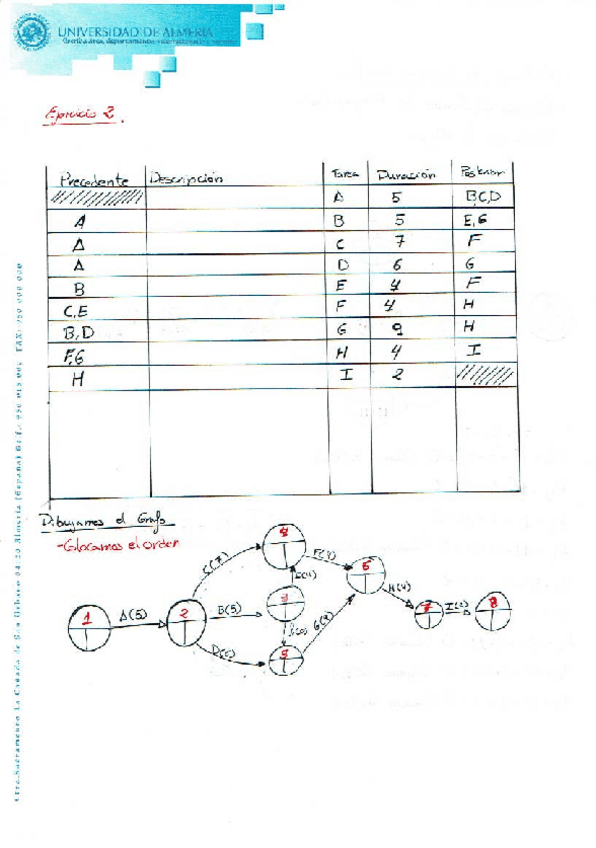 UNIVERSIDAD DE ALMERIA
Ejercicio 2.
Precedente Descripción Tarea Duración Posterior
A 5 B,C,D
A B 5 E,G
A C 7 F
A D 6 G
B E 4 F
C,E F 4 H
B,D G 9 H
F,G H 4 I
H I 2
Dibujamos el Grafo
-Colocamos el orden
1 A(5) 2 C(7) 4 F(4) 6 H(4) 7 I(2) 8
B(5) 3 E(4)
D(6) 5 G(9)
Ctra.Sacramento La Cañada de San Urbano 04120 Almería (España)